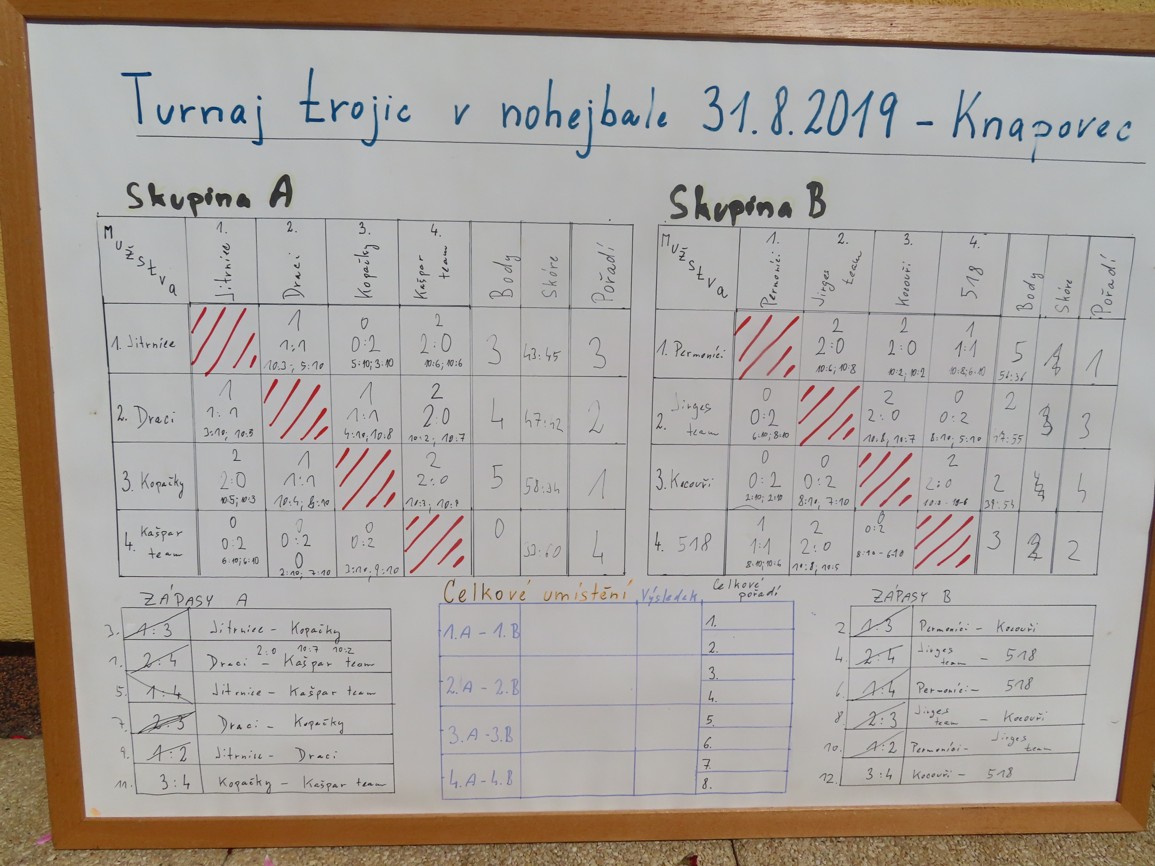 Turnaj trojic v nohejbale 31.8.2019 – Knapovec
Skupina A
Mužstva 1. Jitrnice 2. Draci 3. Kopačky 4. Kašpar team Body Skóre Pořadí
1 0 2
1. Jitrnice 1:1 0:2 2:0 3 43:45 3
10:3; 5:10 5:10; 3:10 10:6; 10:6
1 1 2
2. Draci 1:1 1:1 2:0 4 47:42 2
3:10; 10:5 4:10, 10:8 10:2; 10:7
2 1 2
3. Kopačky 2:0 1:1 2:0 5 58:34 1
10:5; 10:3 10:4; 8:10
0 0 0 0
4. Kašpar team 0:2 0:2 0:2 4
6:10; 6:10 0
2:10; 7:10 3:10, 9:10
Skupina B
Mužstva 1. Permoníci 2. Jirges team 3. Kocouři 4. 518 Body Skóre Pořadí
2 2 1
1. Permoníci 2:0 2:0 1:1 5 1
10:6; 10:8 10:2; 10:2 10:8; 6:10 56:36
0 2 0 2
2. Jirges team 0:2 2:0 0:2 3
6:10; 8:10 10:8, 10:7 8:10; 5:10
0 0 2
3. Kocouři 0:2 0:2 2:0 2 4
2:10; 2:10 8:10; 7:10
1 2 0:2
4. 518 1:1 2:0 3 2
8:10; 10:6 10:8, 10:5 8:10 - 6:10
ZÁPASY A
3. 1:3 Jitrnice – Kopačky
2:0 10:7 10:2
1. 2:4 Draci – Kašpar team
5. 1:4 Jitrnice – Kašpar team
7. 2:3 Draci – Kopačky
9. 1:2 Jitrnice – Draci
11. 3:4 Kopačky – Kašpar team
Celkové umístění Výsledek Celkové pořadí
1.A – 1.B
2.A – 2.B
3.A – 3.B
4.A – 4.B
1.
2.
3.
4.
5.
6.
7.
8.
ZÁPASY B
2. 1:3 Permoníci – Kocouři
4. 2:4 Jirges team – 518
6. 1:4 Permoníci – 518
8. 2:3 Jirges team – Kocouři
10. 1:2 Permoníci – Jirges team
12. 3:4 Kocouři – 518